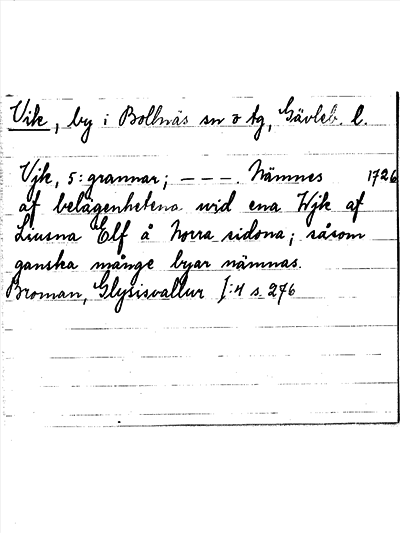 Vik, by i Bollnäs sn o tg, Gävleb. l.
Vjk, 5: grannar; – – –. Nämnes 1726
af belägenhetena wid ena Wjk af
Liusna Elf å Norra sidona; såsom
ganska månge byar nämnas.
Broman, Glysisvallur I:4 s. 276